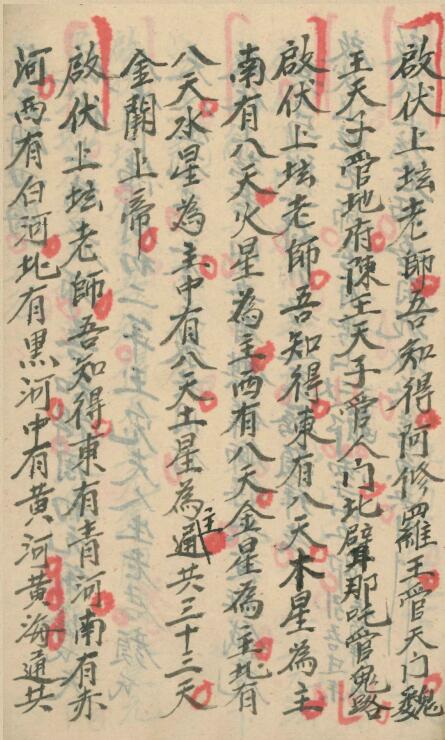 啟伏上坛老師吾知得阿修羅王管天门魏
王天子管地府陳王天子管人门北壁那吒管鬼路
啟伏上坛老師吾知得東有八天木星為主
南有八天火星為主西有八天金星為主北有
八天水星為主中有八天土星為主通共三十三天
金闕上帝
啟伏上坛老師吾知得東有青河南有赤
河西有白河北有黒河中有黄河黄海通共